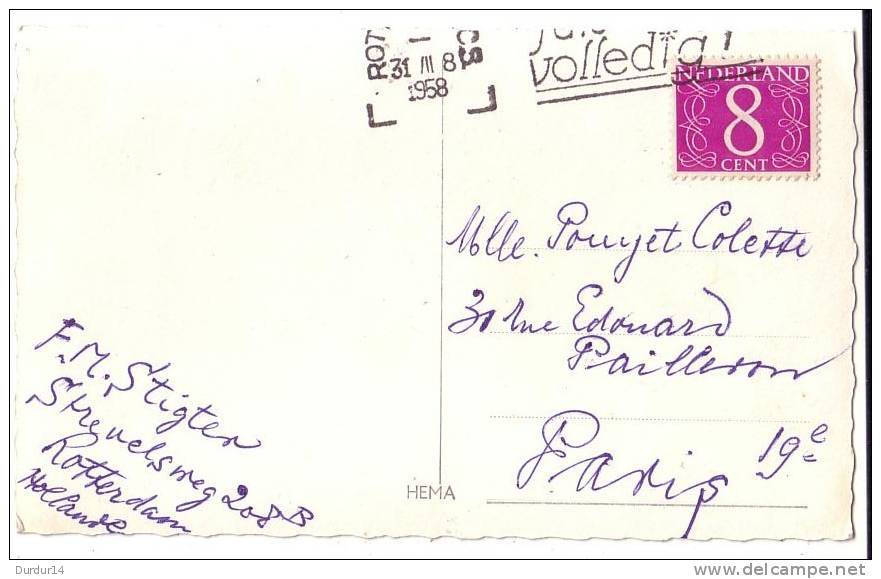 ROT
31 III 8
1958
volledig!
NEDERLAND
8
CENT
Mlle. Pouyet Colette
31 rue Edouard
Pailleron
Paris 19e
F.M. Stigter
Strevelsweg 208B
Rotterdam
Hollande
HEMA
Durdur14
www.delcampe.net